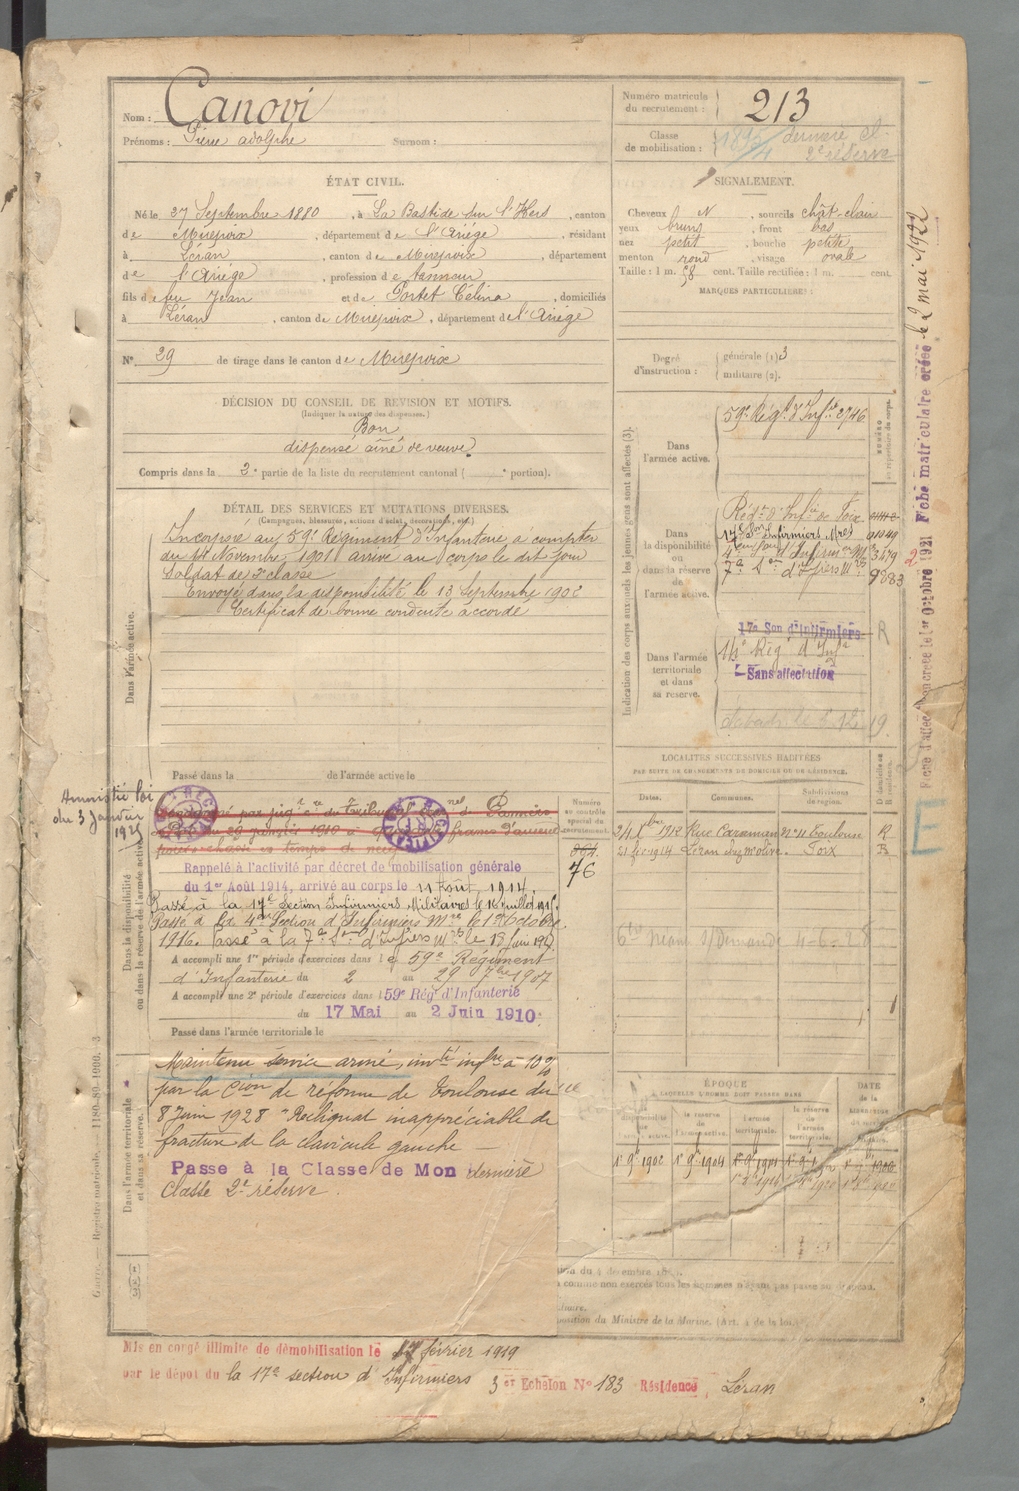 Nom : Canovi
Prénoms : Pierre adolphe Surnom :
Numéro matricule du recrutement : 213
Classe de mobilisation : 1895/4 dernière Cl. 2e réserve
ÉTAT CIVIL.
Né le 27 Septembre 1880, à La Bastide sur l'Hers, canton
de Mirepoix, département de l'Ariège, résidant
à Léran, canton de Mirepoix, département
de l'Ariège, profession de tanneur
fils de feu Jean et de Portet Célina, domiciliés
à Léran, canton de Mirepoix, département de l'Ariège
N° 29 de tirage dans le canton de Mirepoix
SIGNALEMENT.
Cheveux N, sourcils chât clair
yeux bruns, front bas
nez petit, bouche petite
menton rond, visage ovale
Taille : 1 m. 58 cent. Taille rectifiée : 1 m. cent.
MARQUES PARTICULIÈRES :
Degré d'instruction : générale (1) 3
militaire (2).
DÉCISION DU CONSEIL DE REVISION ET MOTIFS.
(Indiquer la nature des dispenses.)
Bon
dispensé aîné de veuve
Compris dans la 2e partie de la liste du recrutement cantonal ( e portion).
DÉTAIL DES SERVICES ET MUTATIONS DIVERSES.
(Campagnes, blessures, actions d'éclat, décorations, etc.)
Incorporé au 59e Régiment d'Infanterie à compter
du 14 Novembre 1901 arrivé au corps le dit jour
Soldat de 2e classe
Envoyé dans la disponibilité le 13 Septembre 1902
Certificat de bonne conduite accordé
Dans l'armée active.
Passé dans la de l'armée active le
Indication des corps auxquels les jeunes gens sont affectés (3).
NUMÉRO au répertoire du corps.
Dans l'armée active.
59e Régt d'Infie 2746
Dans la disponibilité ou dans la réserve de l'armée active.
Régt d'Infie de Foix
17e Son Infirmiers Mres 01349
4e Son d'Infirm M 3479
7e Son d'Infiers Mres 9883
Dans l'armée territoriale et dans sa réserve.
17e Son d'Infirmiers R
14e Rég d'Infie
Sans affectation
Amnistié loi
du 3 Janvier
1925
Rappelé à l'activité par décret de mobilisation générale
du 1er Août 1914, arrivé au corps le 11 Août 1914.
Passé à la 17e Section Infirmiers Militaires le 16 juillet 1915.
Passé à la 4e Section d'Infirmiers Mres le 1er Octobre
1916. Passé à la 7e Son d'Infiers Mres le 18 Juin 1917
A accompli une 1re période d'exercices dans le 59e Régiment
d'Infanterie du 2 au 29 7bre 1907
A accompli une 2e période d'exercices dans l 59e Rég. d'Infanterie
du 17 Mai au 2 Juin 1910
Passé dans l'armée territoriale le
Dans la disponibilité ou dans la réserve de l'armée active.
Numéro au contrôle spécial du recrutement.
76
LOCALITÉS SUCCESSIVES HABITÉES
PAR SUITE DE CHANGEMENTS DE DOMICILE OU DE RÉSIDENCE.
Dates. Communes. Subdivisions de région. D domicile ou R résidence.
24 Xbre 1912 Rue Caraman n° 11 Toulouse R
21 fév 1914 Léran Toix R
Maintenu service armé, invté infre à 10 %
par la Cion de réforme de Toulouse du
8 Juin 1928 "Reliquat inappréciable de
fracture de la clavicule gauche —
Passe à la Classe de Mon dernière
Classe 2e réserve.
Dans l'armée territoriale et dans sa réserve.
ÉPOQUE
À LAQUELLE L'HOMME DOIT PASSER DANS
DATE DE LA LIBÉRATION
1er 9bre 1902 1er 9bre 1904
position du Ministre de la Marine. (Art. 4 de la loi.)
Mis en congé illimité de démobilisation le 17 février 1919
par le dépôt du la 17e section d'Infirmiers 3er Echelon N° 183 Résidence, Léran
Guerre. — Registre matricule. — 1180-89-1900. 3
Fiche matriculaire créée le 2 mai 1922